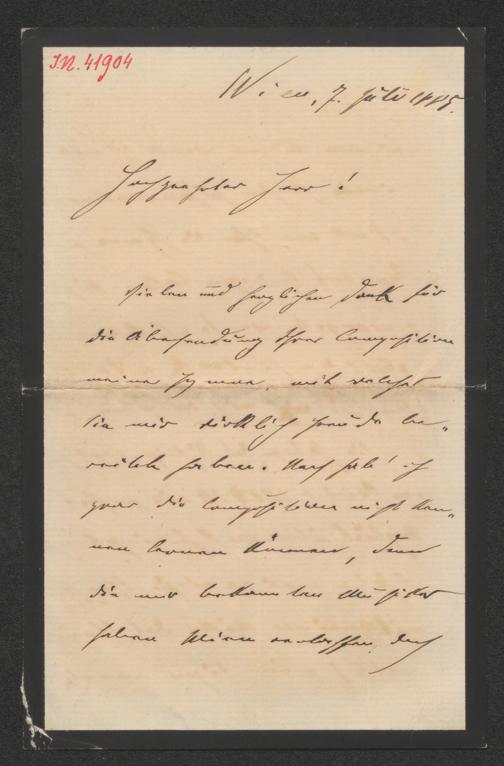 I.N. 41904
Wien, 7. Juli 1885.
Hochgeehrter Herr!
Vielen und herzlichen Dank für
die Übersendung Ihrer Composition
meiner Hymne, mit welcher
Sie mir wirklich Freude be-
reitet haben. Noch hab' ich
zwar die Composition nicht ken-
nen lernen können, denn
die mir bekannten Musiker
haben Wien verlassen, doch